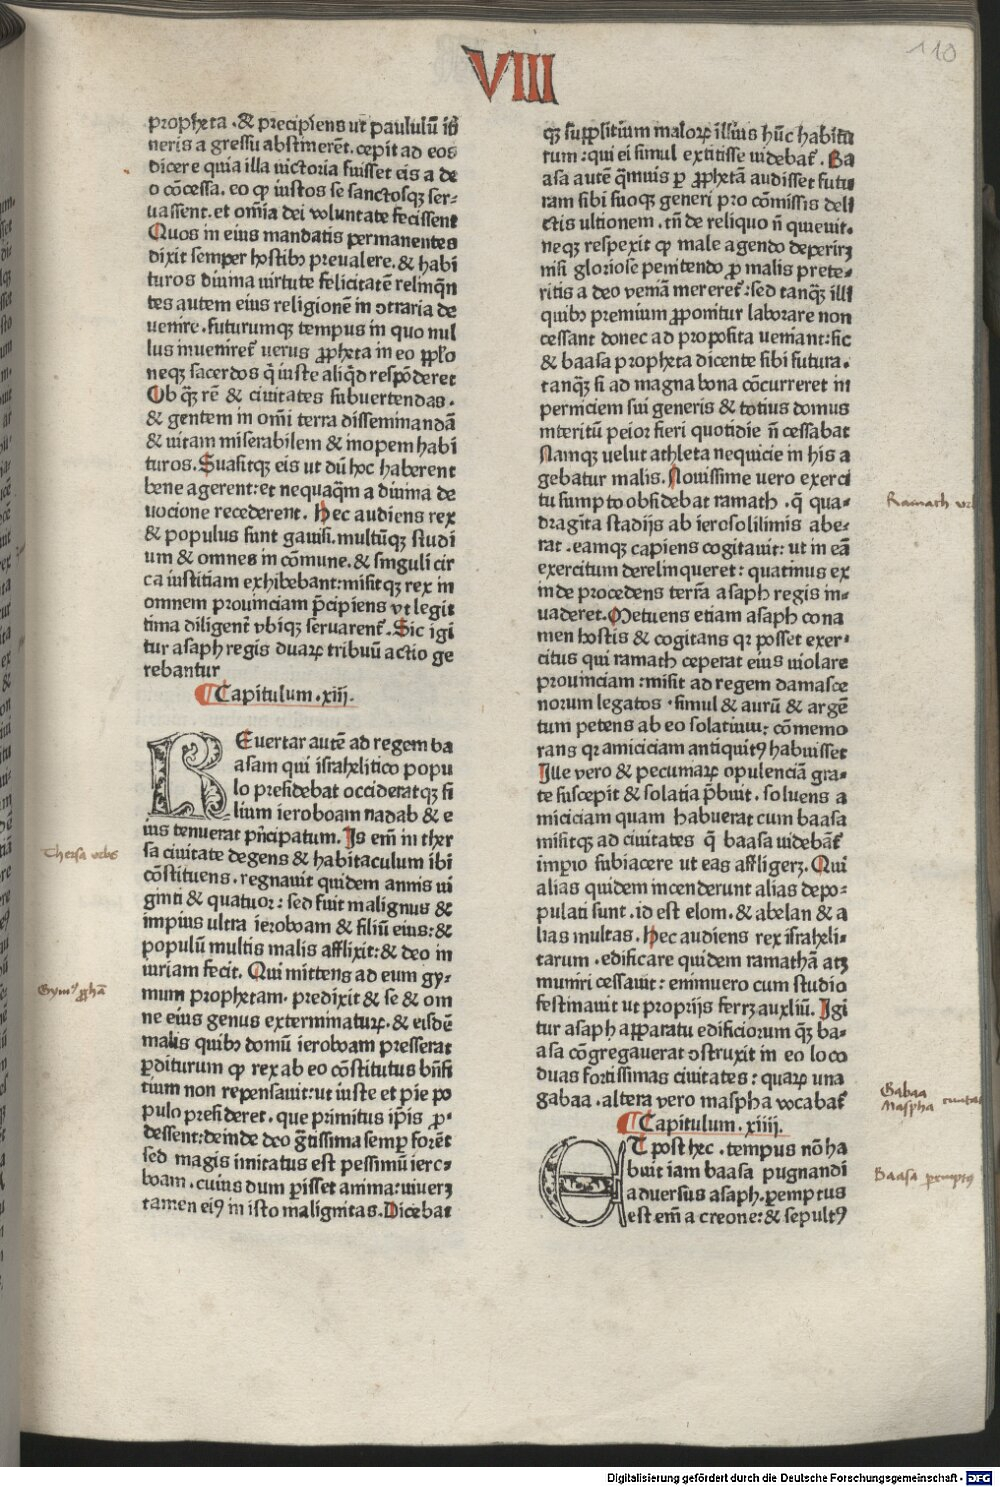 110
VIII
propheta .& precipiens ut paululū itī
neris a gressu abstinerēt. cepit ad eos
dicere quia illa uictoria fuisset eis a de
o cōcessa. eo ꝙ iustos se sanctosqꝫ ser-
uassent. et om̄ia dei voluntate fecissent
Quos in eius mandatis permanentes
dixit semper hostibꝫ preualere. & habi
turos diuina uirtute felicitatē relinqn̄
tes autem eius religionē in ↄtraria de
uenire. futurumqꝫ tempus in quo nul
lus inueniret̄ uerus ꝓpheta in eo pp̄lo
neqꝫ sacerdos q̄ iuste aliqd̄ respōderet
Ob q̄ꝫ rē & ciuitates subuertendas.
& gentem in om̄i terra disseminandā
& uitam miserabilem & inopem habi
turos. Suasitqꝫ eis ut dū hoc haberent
bene agerent: et nequaq̄m a diuina de
uocione recederent. Hec audiens rex
& populus sunt gauisi. multūqꝫ studi
um & omnes in cōmune. & singuli cir
ca iustitiam exhibebant: misitqꝫ rex in
omnem prouinciam p̄cipiens vt legit
tima diligent̄ vbiqꝫ seruarent̄. Sic igi
tur asaph regis duaꝝ tribuū actio ge
rebantur
¶ Capitulum .xiij.
REuertar autē ad regem ba
asam qui israhelitico popu
lo presidebat occideratqꝫ fi
lium ieroboam nadab & e
ius tenuerat pn̄cipatum. Is em̄ in ther
sa ciuitate degens & habitaculum ibi
cōstituens. regnauit quidem annis ui
ginti & quatuor: sed fuit malignus &
impius ultra ieroboam & filiū eius: &
populū multis malis afflixit: & deo in
iuriam fecit. Qui mittens ad eum gy-
mum prophetam. predixit & se & om
ne eius genus exterminatuꝝ. & eisdē
malis quibꝫ domū ieroboam presserat
ꝑditurum ꝙ rex ab eo cōstitutus bn̄fi
tium non repensauit: ut iuste et pie po
pulo presideret. que primitus ip̄is ꝓ-
dessent: deinde deo ḡtissima semꝑ forēt
sed magis imitatus est pessimū iero-
boam. cuius dum ꝑisset anima: uiuerꝫ
tamen eiꝰ in isto malignitas. Dicebat
qꝫ suꝓsitium maloꝝ illius hūc habitu
rum: qui ei simul extitisse uidebat̄. Ba
asa autē q̄muis ꝑ ꝓphetā audisset futu
ram sibi suoqꝫ generi pro cōmissis deli
ctis ultionem. tn̄ de reliquo n̄ quieuit.
neqꝫ respexit ꝙ male agendo deperirꝫ
nisi gloriose penitendo ꝓ malis prete-
ritis a deo ueniā mereret̄: sed tanq̄ꝫ illi
quibꝫ premium ꝓponitur laborare non
cessant donec ad proposita ueniant: sic
& baasa propheta dicente sibi futura.
tanq̄ꝫ si ad magna bona cōcurreret in
perniciem sui generis & totius domus
interitū peior fieri quotidie n̄ cessabat
Namqꝫ velut athleta nequicie in his a
gebatur malis. Nouissime uero exerci
tu sumpto obsidebat ramath . q̄ qua-
dragīta stadijs ab ierosolilimis abe-
rat. eamqꝫ capiens cogitauit: ut in eā
exercitum derelinqueret: quatinus ex
inde procedens terrā asaph regis in-
uaderet. Metuens etiam asaph cona
men hostis & cogitans qꝛ posset exer-
citus qui ramath ceperat eius uiolare
prouinciam: misit ad regem damasce
norum legatos . simul & aurū & argē
tum petens ab eo solatium: cōmemo
rans qꝛ amiciciam antiquitꝰ habuisset
Ille vero & pecuniaꝝ opulenciā gra-
te suscepit & solatia p̄buit. soluens a
miciciam quam habuerat cum baasa
misitqꝫ ad ciuitates q̄ baasa uidebāt̄
imꝑio subiacere ut eas affligerꝫ. Qui
alias quidem incenderunt alias depo-
pulati sunt. id est elom. & abelan & a
lias multas. Hec audiens rex israheli-
tarum. edificare quidem ramathā atꝫ
muniri cessauit: enimuero cum studio
festinauit ut proprijs ferrꝫ auxliū. Igi
tur asaph apparatu edificiorum q̄ꝫ ba-
asa cōgregauerat ↄstruxit in eo loco
duas fortissimas ciuitates: quaꝝ una
gabaa. altera vero maspha vocabat̄
¶ Capitulum .xiiij.
ET post hec . tempus nō ha
buit iam baasa pugnandi
aduersus asaph. ꝑemptus
est em̄ a creone: & sepultꝰ
Thersa urbs
Gymꝰ ꝓphā
Ramath
Gabaa
Maspha
Baasa
Digitalisierung gefördert durch die Deutsche Forschungsgemeinschaft - DFG